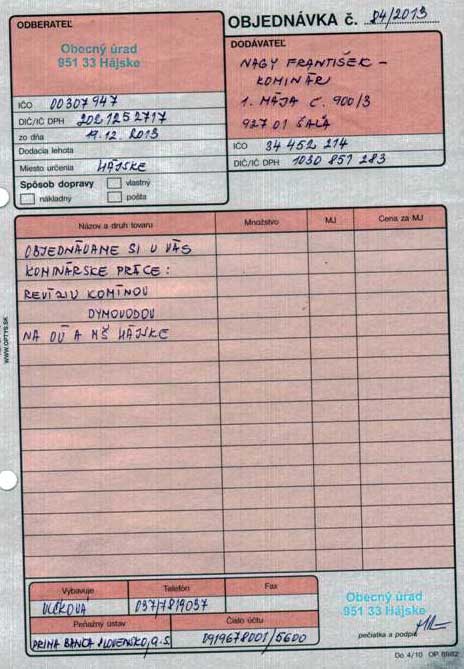 OBJEDNÁVKA č. 84/2013
ODBERATEĽ
Obecný úrad
951 33 Hájske
IČO 00307947
DIČ/IČ DPH 2021252717
zo dňa 19.12.2013
Dodacia lehota
Miesto určenia HÁJSKE
Spôsob dopravy
vlastný
nákladný
pošta
DODÁVATEĽ
NAGY FRANTIŠEK -
KOMINÁR
1. MÁJA Č. 900/3
927 01 ŠAĽA
IČO 34 452 214
DIČ/IČ DPH 1030 857 283
Názov a druh tovaru Množstvo MJ Cena za MJ
OBJEDNÁVAME SI U VÁS
KOMINÁRSKE PRÁCE:
REVÍZIU KOMÍNOV
DYMOVODOV
NA OÚ A MŠ HÁJSKE
WWW.OPTYS.SK
Vybavuje Telefón Fax
VLČKOVÁ 037/7819037
Peňažný ústav Číslo účtu
PRIMA BANCA SLOVENSKO, a.s. 0919678001/5600
Obecný úrad
951 33 Hájske
pečiatka a podpis
Do 4/10 OP